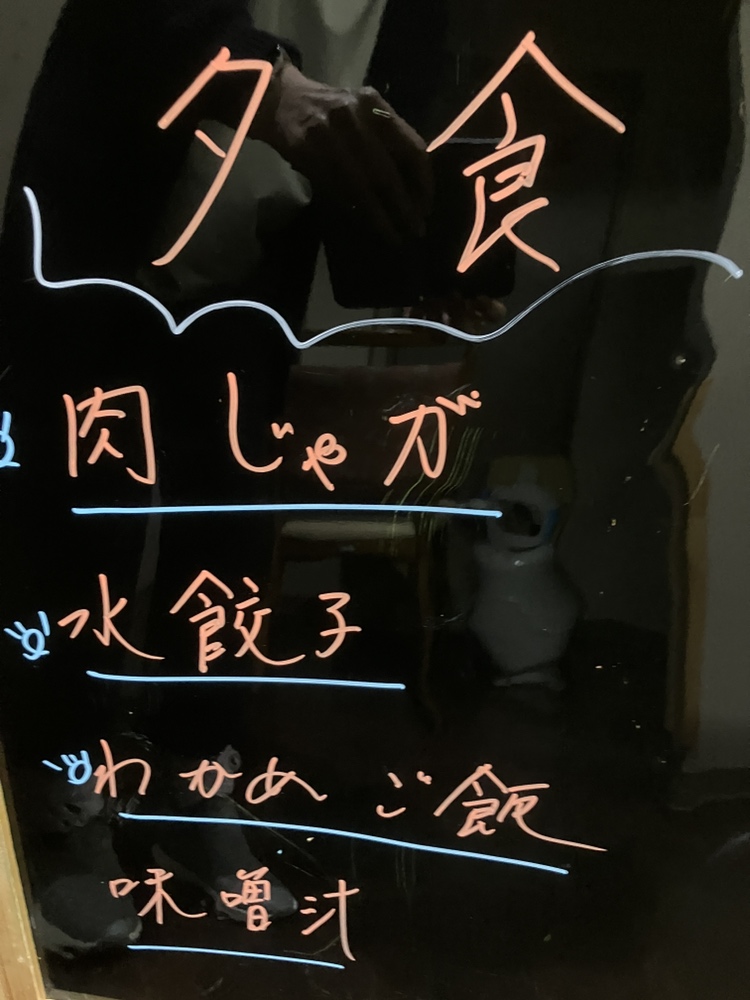 夕食
肉じゃが
水餃子
わかめご飯
味噌汁